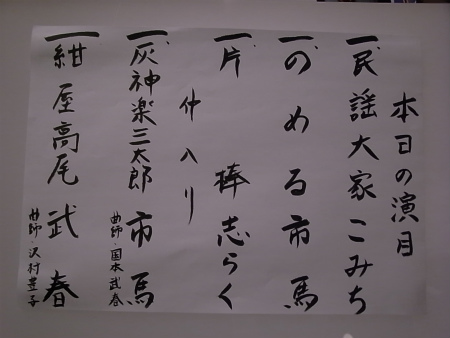 本日の演目
一、民謡大家 こみち
一、のめる 市馬
一、片棒 志らく
仲入り
一、灰神楽三太郎 市馬
曲師・国本武春
一、紺屋高尾 武春
曲師・沢村豊子